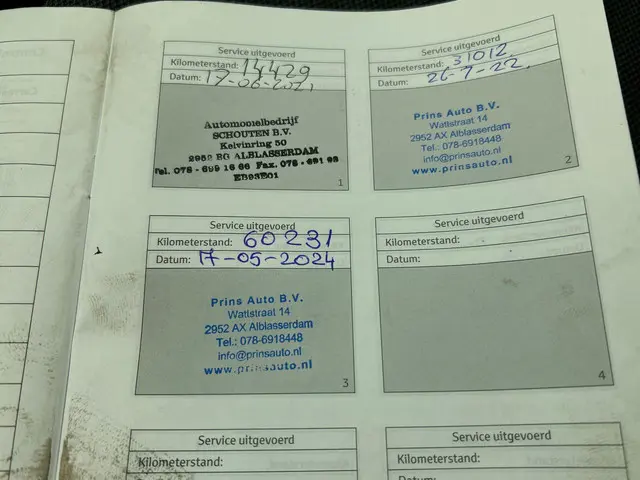 Service uitgevoerd
Kilometerstand: 14429
Datum: 17-06-2021
Automobielbedrijf
SCHOUTEN B.V.
Kelvinring 50
2952 BG ALBLASSERDAM
Tel. 078 - 699 16 66 Fax. 078 - 691 98
1
Service uitgevoerd
Kilometerstand: 31012
Datum: 26-7-22
Prins Auto B.V.
Wattstraat 14
2952 AX Alblasserdam
Tel.: 078-6918448
info@prinsauto.nl
www.prinsauto.nl
2
Service uitgevoerd
Kilometerstand: 60231
Datum: 17-05-2024
Prins Auto B.V.
Wattstraat 14
2952 AX Alblasserdam
Tel.: 078-6918448
info@prinsauto.nl
www.prinsauto.nl
3
Service uitgevoerd
Kilometerstand:
Datum:
4
Service uitgevoerd
Kilometerstand:
Service uitgevoerd
Kilometerstand: